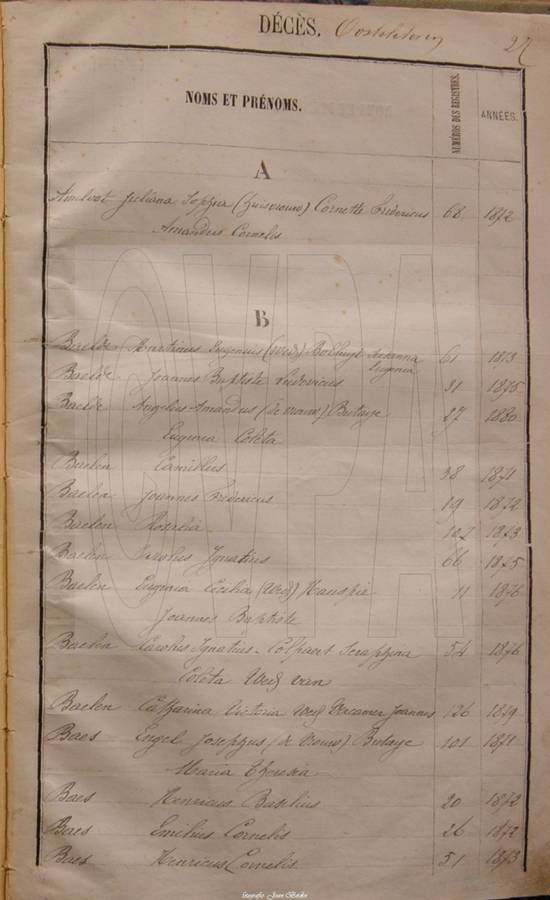 DÉCÈS. 27
NOMS ET PRÉNOMS. NUMÉROS DES REGISTRES. ANNÉES.
A
Juliana Sophia (huisvrouw) Cornette Frédéricus 68 1872
Amandus Cornelis
B
Baelde Martinus Eugenius (Wed) 61 1873
Eugenia
Baelde Joannes Baptiste Ludovicus 31 1875
Baelde Angelus Amandus (de vrouw) Butaye 27 1880
Eugenia Coleta
Baelen Camillus 38 1871
Baelen Joannes Fredericus 19 1872
Baelen Rosalia 107 1873
Baelen Carolus Ignatius 66 1875
Baelen Eugenia Cecilia (Wed) 11 1876
Joannes Baptiste
Baelen Carolus Ignatius - Colpaert Seraphina 54 1876
Coleta Wed van
Baelen Catharina Victoria Wed Joannes 126 1879
Baes Engel Josephus (de Vrouw) Butaye 101 1871
Maria Theresia
Baes Henricus Basilius 20 1872
Baes Emilius Cornelis 26 1872
Baes Henricus Cornelis 51 1873